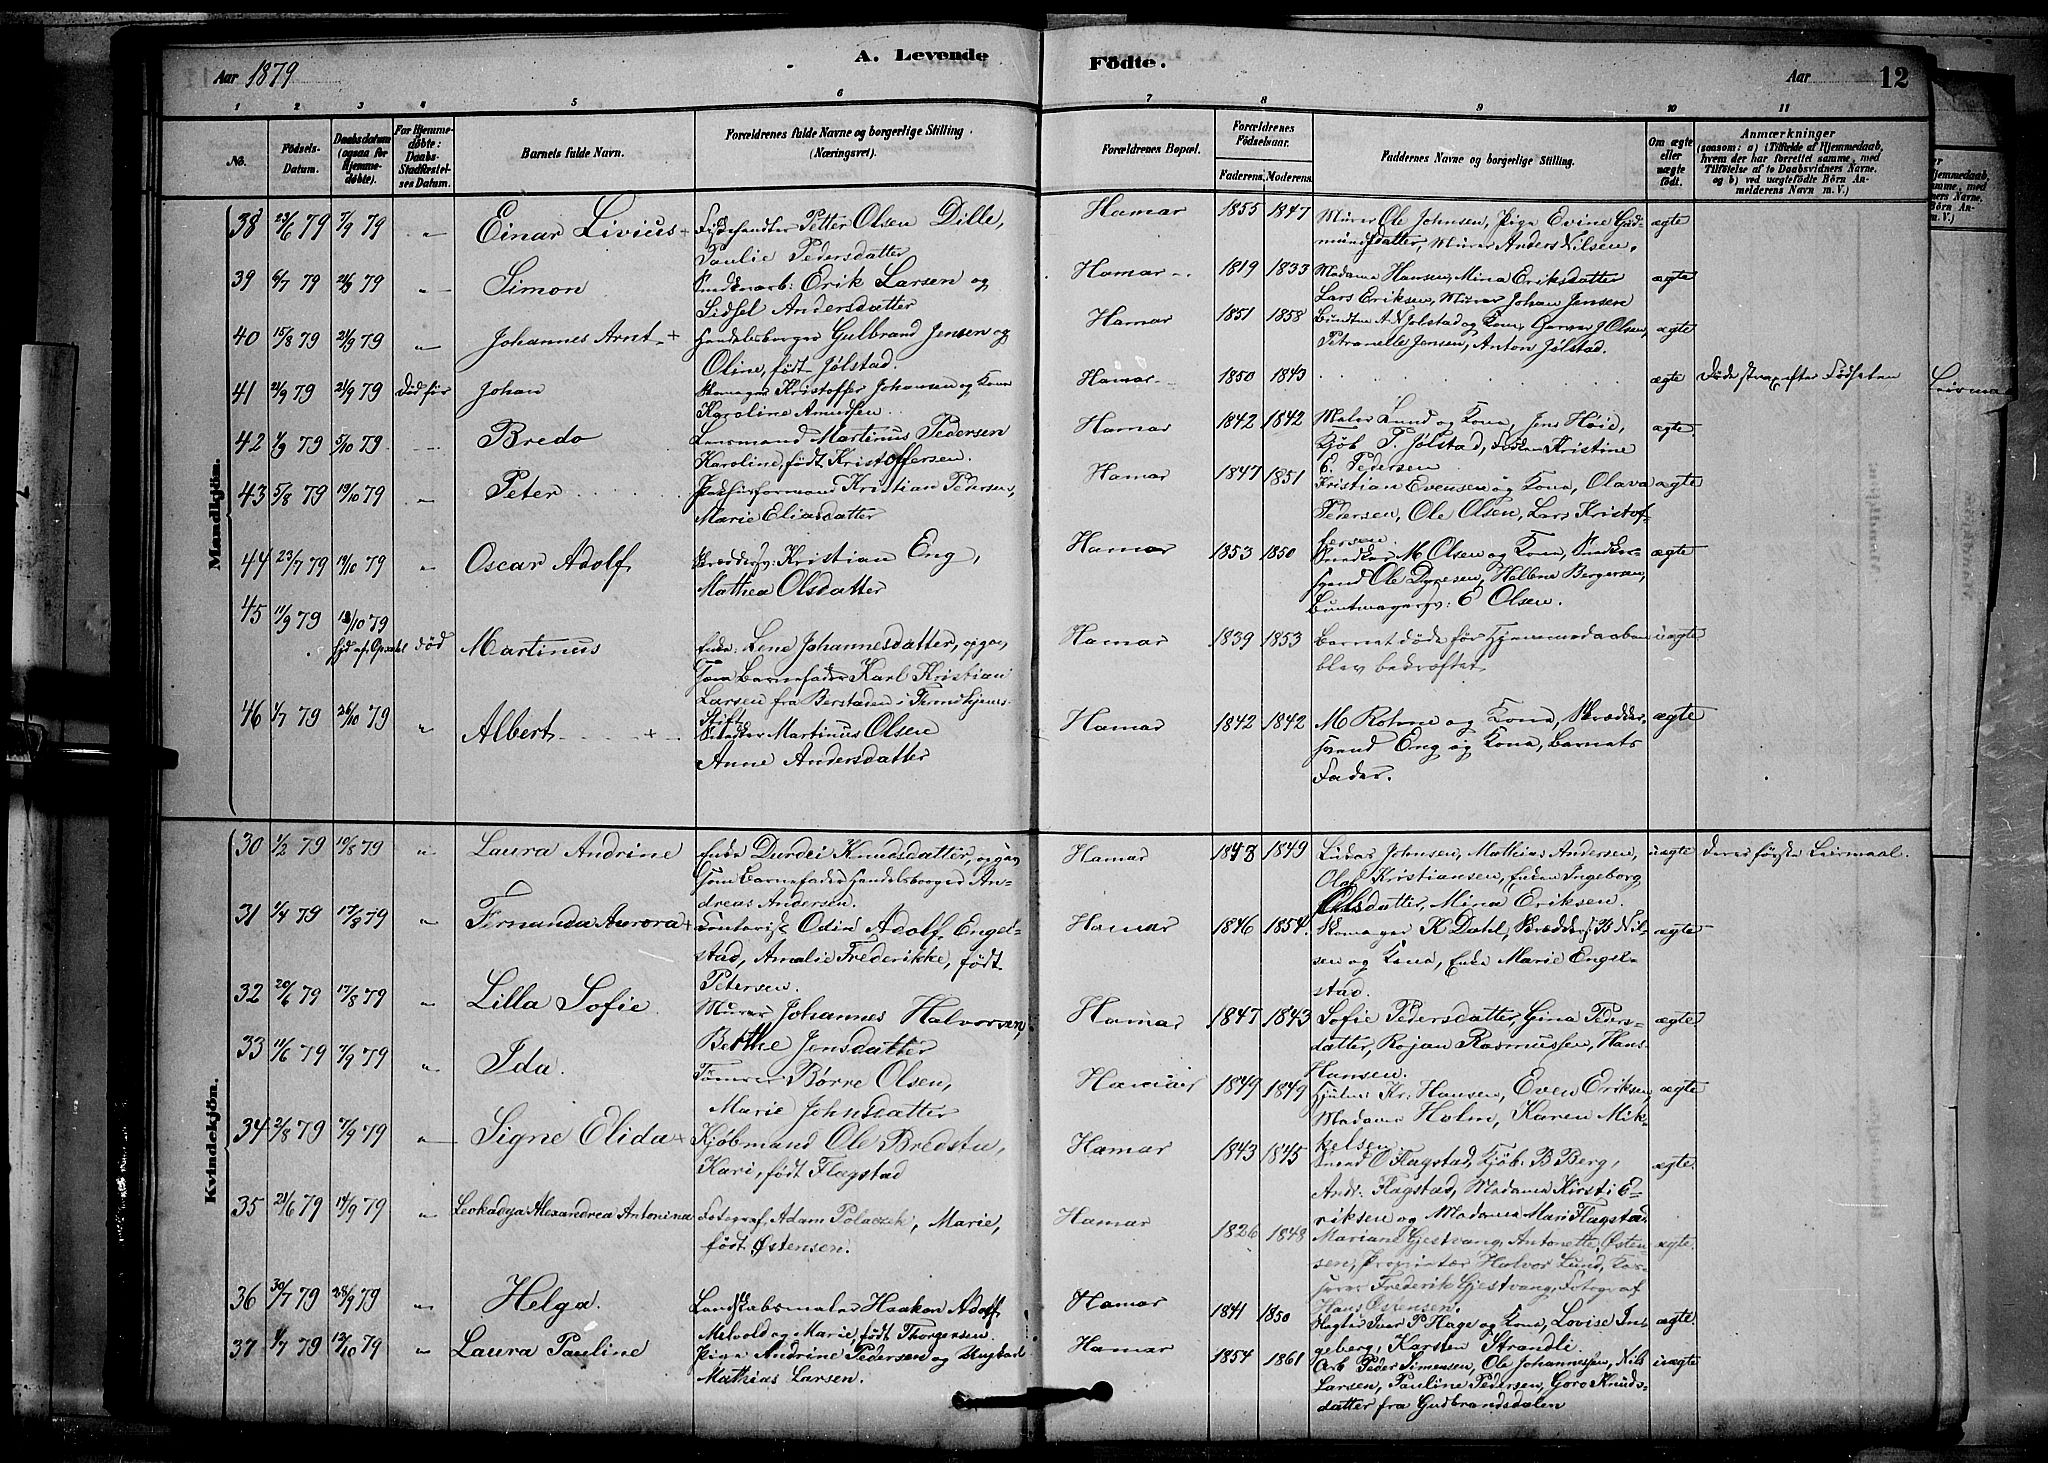 A. Levende
Födte.
Aar 1879
Aar
12
1 2 3 4 5 6 7 8 9 10 11
No.
Födsels-Datum.
Daabsdatum (ogsaa for Hjemmedöbte).
For Hjemmedöbte: Daabs-Stadfæstelses Datum.
Barnets fulde Navn.
Forældrenes fulde Navne og borgerlige Stilling (Næringsvei).
Forældrenes Bopæl.
Forældrenes Födselsaar.
Faderens. Moderens.
Faddernes Navne og borgerlige Stilling.
Om ægte eller uægte födt.
Anmærkninger
(saasom: a) i Tilfælde af Hjemmedaab, hvem der har forrettet samme, med Tilföielse af to Daabsvidners Navne, og b) ved uægtefödte Börn Anmelderens Navn m. V.)
Mandkjön.
38 23/6 79 7/9 79 " Einar Livius + Petter Olsen Dille, Hamar 1855 1847 Murer Ole Johnsen, Pige Evine Gud- ægte
Paulie Pedersdatter mundsdatter, Murer Anders Nilsen.
39 6/7 79 21/9 79 " Simon Erik Larsen og Hamar 1819 1833 Madame Hansen, Mina Eriksdatter ægte
Sidsel Andersdatter Lars Eriksen, Murer Johan Jensen
40 15/8 79 21/9 79 " Johannes Arnt + Handelsborger Gulbrand Jensen og Hamar 1851 1858 Jølstad og Kone, Garver J Olsen, ægte
Oline, født Jølstad. Petranelle Jensen, Anton Jølstad.
41 21/9 79 21/9 79 Død før Johan Skomager Kristoffer Johansen og Kone Hamar 1850 1843 ægte Døde strax efter Fødselen
Karoline Amundsen
42 1/9 79 5/10 79 Bredo Lensmand Martinus Pedersen Hamar 1842 1842 Maler Lund og Kone, Jens Høie, ægte
Karoline, født Kristoffersen. Kjøb. P. Jølstad, Kristine
E. Pedersen
43 5/8 79 19/10 79 " Peter Kristian Pedersen, Hamar 1847 1851 Kristian Evensen og Kone, Olava ægte
Marie Eliasdatter Pedersen, Ole Olsen, Lars Kristof-
fersen.
44 23/7 79 19/10 79 " Oscar Adolf Kristian Eng, Hamar 1853 1850 Snedker M Olsen og Kone, Snedker- ægte
Mathea Olsdatter svend Ole Dyresen, Hellene Bergersen,
Buntmagersv: E Olsen.
45 11/9 79 10 79 død Martinus Enke: Lene Johannesdatter, opgav Hamar 1839 1853 Barnet døde før Hjemmedaaben uægte
som Barnefader Karl Kristian blev bekræftet
Larsen fra
Stift
46 1/7 79 26/10 79 " Albert + Snedker Martinus Olsen Hamar 1842 1842 M Rohne og Kone, Skrædder- ægte
Anne Andersdatter svend Eng og Kone, Barnets
Fader.
Kvindekjön.
30 1/2 79 10/8 79 " Laura Andrine Enke Durdei Knudsdatter, opgav Hamar 1848 1849 Johnsen, Mathias Andersen, uægte deres første Leiermaal.
som Barnefader Handelsborger An- Olaf Kristiansen, Enken Ingeborg
dreas Andersen. Olsdatter, Mina Eriksen.
31 1/4 79 17/8 79 " Fernanda Aurora + Kontorist Odin Adolf Engel- Hamar 1846 1854 Skomager K Dahl, Nil- ægte
stad, Amalie Frederikke, født sen og Kone, Enke Marie Engel-
Petersen. stad.
32 20/6 79 17/8 79 " Lilla Sofie Murer Johannes Halvorsen, Hamar 1847 1843 Sofie Pedersdatter, Gina Peders- ægte
Berthe Jensdatter datter, Rojan Rasmussen, Hans
Hansen.
33 11/6 79 7/9 79 " Ida. Tømrer Børre Olsen, Hamar 1849 1849 Kr: Hansen, Even Eriksen, ægte
Marie Johnsdatter Madame Holm, Karen Mik-
kelsen
34 2/8 79 7/9 79 " Signe Elida + Kjøbmand Ole Bredstu, Hamar 1843 1845 Smed O Flagstad, Kjøb. B Berg, ægte.
Kari, født Flagstad Andr. Flagstad, Madame Kirsti E-
riksen og Madame Mari Flagstad.
35 21/6 79 14/9 79 " Leokadya Alexandrea Antonina Fotograf Adam Polaczek, Marie, Hamar 1826 1848 Mariane Gjestvang, Antonette Østen- ægte.
født Østensen. sen, Proprietær Halvor Lund, Kas-
serer Frederik Gjestvang, Fotograf
Hans Østensen.
36 30/7 79 28/9 79 " Helga. Landskabsmaler Haakon Adolf Hamar 1841 1850 Slagter Iver P Hage og Kone, Lovise In- ægte
Melvold og Marie, født Thorgersen. geberg, Karsten Strandli.
37 1/7 79 12/10 79 " Laura Pauline Pige Andrine Pedersen og Ungkarl Hamar 1854 1861 Arb Peder Simensen, Ole Johannessen, Nils uægte
Mathias Larsen. Larsen, Pauline Pedersen, Goro Knuds-
datter fra Gudbrandsdalen